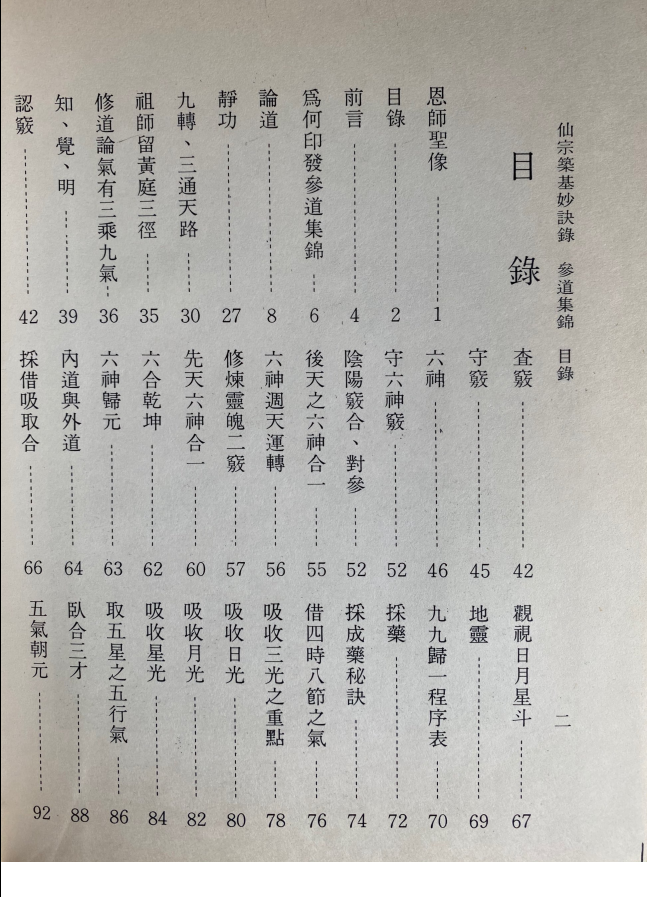 仙宗築基妙訣錄　參道集錦　目錄
二
目　錄
恩師聖像 1
目錄 2
前言 4
爲何印發參道集錦 6
論道 8
靜功 27
九轉、三通天路 30
祖師留黃庭三徑 35
修道論氣有三乘九氣 36
知、覺、明 39
認竅 42
查竅 42
守竅 45
六神 46
守六神竅 52
陰陽竅合、對參 52
後天之六神合一 55
六神週天運轉 56
修煉靈魄二竅 57
先天六神合一 60
六合乾坤 62
六神歸元 63
內道與外道 64
採借吸取合 66
觀視日月星斗 67
地靈 69
九九歸一程序表 70
採藥 72
採成藥秘訣 74
借四時八節之氣 76
吸收三光之重點 78
吸收日光 80
吸收月光 82
吸收星光 84
取五星之五行氣 86
臥合三才 88
五氣朝元 92